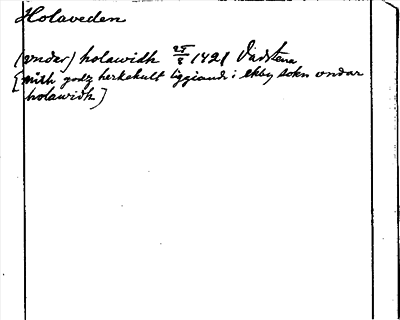 Holaveden
(vnder) holawidh 25/8 1421 Vadstena
[mith godz herkekult liggiande i ekby sokn vndar
holawidh]